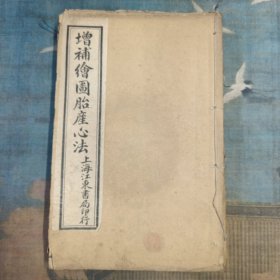 增補繪圖胎產心法
上海江東書局印行